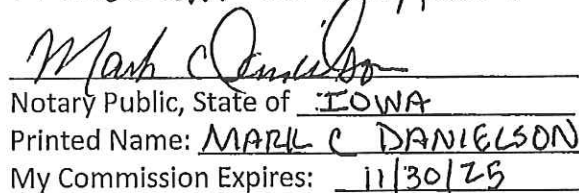 Mark C Danielson
Notary Public, State of IOWA
Printed Name: MARK C DANIELSON
My Commission Expires: 11/30/25